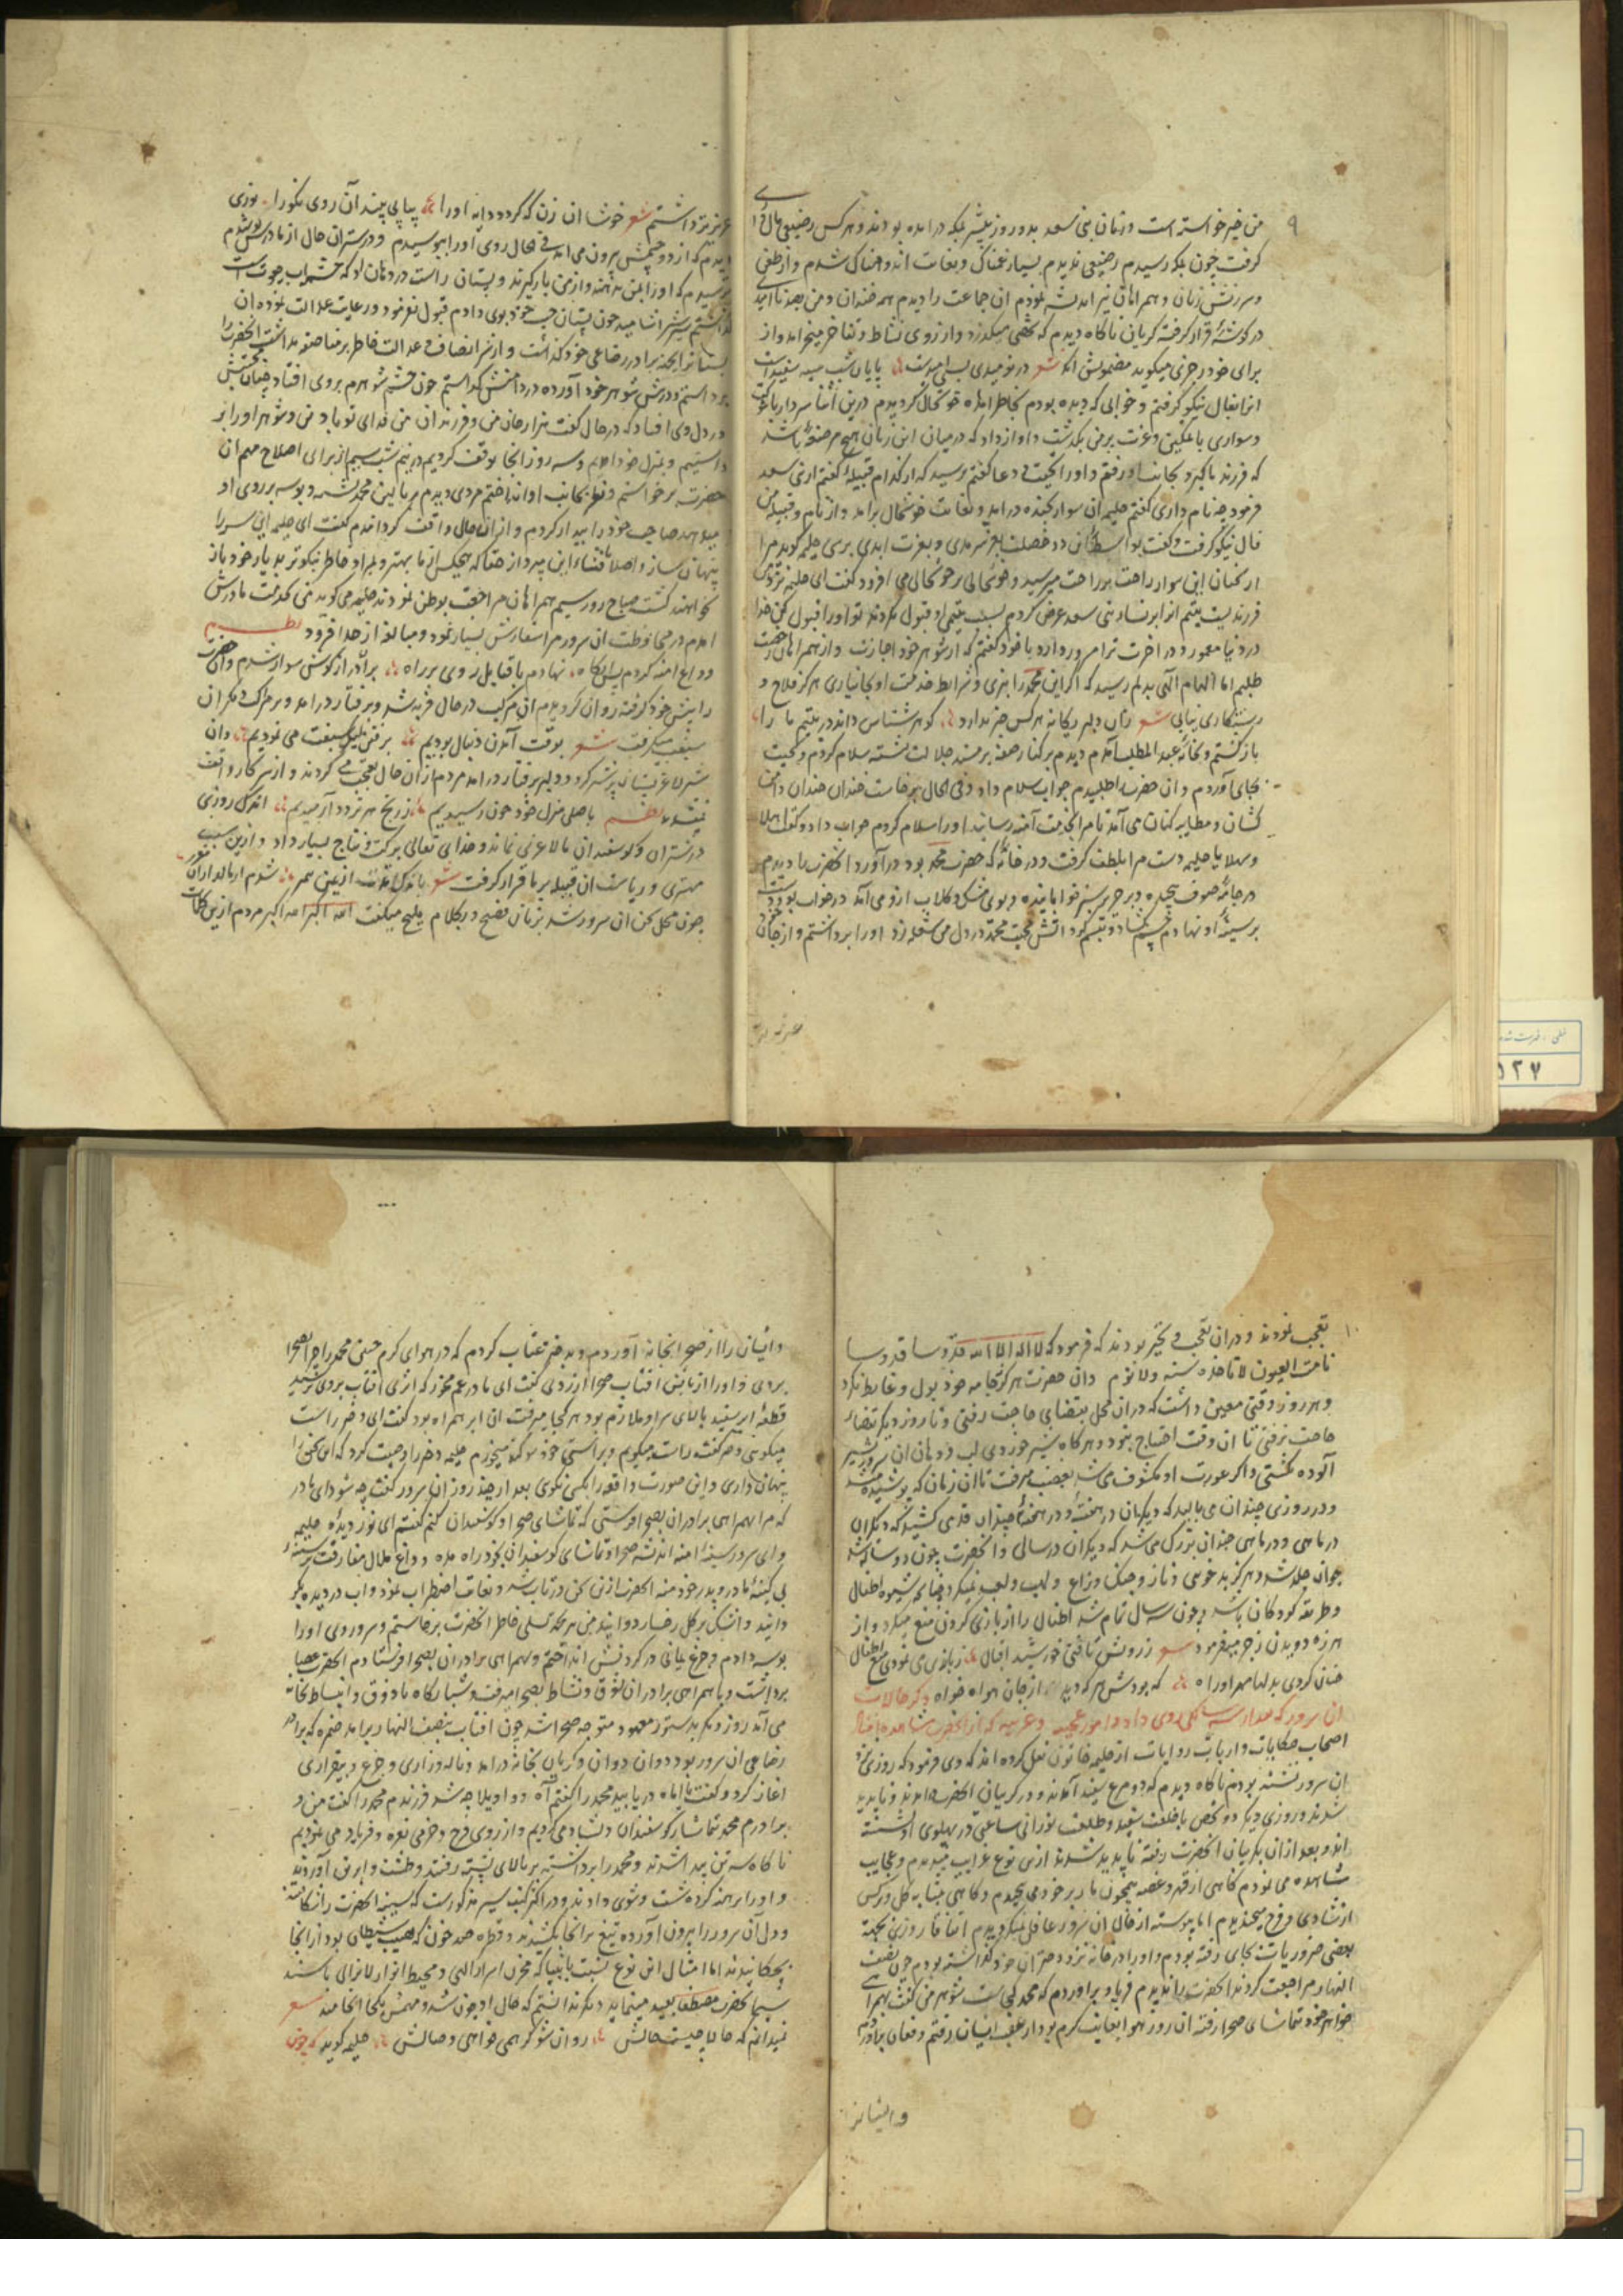 ۹
من خیر خواسته است و زنان بنی سعد بدو روز پیشتر بمکه درامده بودند و هر کس رضیعی مال
گرفت چون بمکه رسیدم رضیعی ندیدم بسیار غمناک و بغایت اندوهناک شدم و از طعن
و سرزنش زنان و همراهان نیز اندیشه نمودم ان جماعت را دیدم همه خندان و من بعد نا امیدی
در گوشهٔ قرار گرفته گریان ناگاه دیدم که شخصی میگذرد و از روی نشاط و تفاخر میخرامد و از
برای خود رجزی میگوید مضمونش انکه شعر در نومیدی بسی امیدست پایان شب سیه سفیدست
ازین فال نیکو گرفتم و خوابی که دیده بودم بخاطر امد خوشحال گردیدم درین اثنا سردار با شوکت
و سواری با تمکین و عزت بر من بگذشت و اواز داد که در میان این زنان هیچ مرضعهٔ باشد
که فرزند ما گیرد بجانب او رفتم و او را تحیت و دعا گفتم پرسید که از کدام قبیلهٔ گفتم از بنی سعد
فرمود چه نام داری گفتم حلیمه ان سوار بخنده درامد و بغایت خوشحال برامد و از نام و قبیله من
فال نیکو گرفت و گفت بواسطهٔ این دو خصلت بعز سرمدی و بعزت ابدی برسی حلیمه گوید مرا
از سخنان این سوار راحت بر راحت میرسید و خوشحالی بر خوشحالی می افزود گفت ای حلیمه نزد من
فرزندیست یتیم از ابر نساء بنی سعد عرض کردم بسبب یتیمی او قبول نکردند تو او را قبول کن خدا
در دنیا معمور و در اخرت ترا مسرور دارد با خود گفتم که از شوهر خود اجازت و از همراهان رخصت
طلبم اما الهام الهی بدلم رسید که اگر این محمد را نبری و شرایط خدمت او بجا نیاری هرگز فلاح و
رستگاری نیابی شعر زان دلبر یگانه هر کس خبر ندارد گوهر شناس داند در یتیم ما را
بازگشتم و بخانهٔ عبد المطلب آمدم دیدم بر کنار صفه بر مسند جلالت نشسته سلام کردم و تحیت
بجای آوردم و ان حضرت را طلبیدم جواب سلام داد و فی الحال برخاست خندان خندان دامن
کشان و مطایبه کنان می آمد تا مرا بخدمت آمنه رسانید او را سلام کردم جواب داد و گفت اهلا
و سهلا یا حلیمه دست مرا بلطف گرفت و در خانهٔ که حضرت محمد بود درآورد انحضرت را دیدم
در جامهٔ صوف پیچیده و بر حریر سبز خوابانیده و بوی مشک و گلاب ازو می آمد در خواب بود دست
بر سینهٔ او نهادم چشم بگشاد و تبسم کرد اتش محبت محمد در دل من شعله زد او را برداشتم و از جان
عزیزتر
عزیزتر داشتم شعر خوشا ان زن که گردد دایه او را پیاپی بیند آن روی نکو را نوری
دیدم که از دو چشمش بیرون می امد فی الحال روی او را ببوسیدم
ترسیدم که او را بمن ندهند و از من بازگیرند و پستان راست در دهان او
گذاشتم شیر اشامید چون پستان چپ خود بوی دادم قبول نفرمود و رعایت عدالت نموده ان
پستانرا بجهة برادر رضاعی خود گذاشت و از سر انصاف و عدالت
در دل وی افتاد که در حال گفت هزار جان من و فرزندان من فدای تو باد من و شوهر او را بر
داشتیم و بمنزل خود امدیم و سه روز انجا توقف کردیم در نیم شب سیم از برای اصلاح مهم ان
حضرت برخواستم و نظر بجانب او انداختم مردی دیدم بر بالین محمد نشسته و بوسه بر روی او
میدهد صاحب خود را بیدار کردم و از ان حال واقف گردانیدم گفت ای حلیمه این سر را
پنهان ساز و اصلا بافشاء این مپرداز حقا که هیچکس از ما بهتر و بمراد خاطر نیکوتر بدیار خود باز
نخواهند گشت صباح روز سیم همراهان مراجعت بوطن نمودند حلیمه می گوید من بخدمت مادرش
امدم در محافظت ان سرور مرا سفارش بسیار نمود و مبالغه از حد افزود نظم
وداع امنه کردم پس انگاه نهادم با قبایل روی بر راه بر آن درازگوش سوار شدم و ان حضرت
را پیش خود گرفته روان گردیدم ان مرکب در حال فربه شد و برفتار درامد و بر مراکب دیگران
سبقت میگرفت شعر بوقت آمدن دنبال بودیم برفتن لیک سبقت می نمودیم و ان
نظم باصلی منزل خود چون رسیدیم ز رنج هر تردد آرمیدیم اندک روزی
در شتران و گوسفندان ما لاغری نماند و خدای تعالی برکت و نتاج بسیار داد و ازین سبب
مهتری و ریاست ان قبیله بر ما قرار گرفت شعر
چون محل سخن ان سرور شد بزبان فصیح و بکلام ملیح میگفت الله اکبر الله اکبر مردم ازین کلمات
۱۰
تعجب نمودند و دران تعجب و تحیر بودند که فرمود که لا اله الا الله قدوسا قدوسا
نامت العیون لا تاخذه سنة ولا نوم و ان حضرت هرگز بجامه خود بول و غایط نکرد
و هر روز وقتی معین داشت که دران محل بقضای حاجت رفتی و تا روز دیگر بقضاء
حاجت نرفتی تا ان وقت احتیاج نبود و هر گاه شیر خوردی لب و دهان ان سرور بشیر
آلوده نگشتی و اگر عورت او مکشوف می شد بغضب میرفت تا ان زمان که پوشیده میشد
و در روزی چندان می بالید که دیگران در هفتهٔ و در هفتهٔ چندان قد می کشید که دیگران
در ماهی و در ماهی چندان بزرگ می شد که دیگران در سالی و انحضرت چون دو ساله شد
جوان جلد شد و هرگز بدخویی و ناز و جنگ و نزاع و لهب و لعب نمیکرد چنانچه شیوه اطفال
و طریقه کودکان باشد و چون سه سال تمام شد اطفال را از بازی کردن منع میکرد و از
هرزه دویدن زجر میفرمود شعر ز رویش تافتی خورشید اقبال ز بازی می نمودی منع اطفال
چنان کردی بدلها مهر او راه که بودش هر که دید از جان هوا خواه ذکر حالات
ان سرور که بعد از سه سالگی روی داد و امور عجیبه و غریبه که از انحضرت مشاهده افتاد
اصحاب حکایات و ارباب روایات از حلیمه خاتون نقل کرده اند که وی فرمود که روزی نزد
ان سرور نشسته بودم ناگاه دیدم که دو مرغ سفید آمدند و در گریبان انحضرت درامدند و ناپدید
شدند و روزی دیگر دو شخص با خلعت سفید و طلعت نورانی ساعتی در پهلوی او نشسته
اند و بعد از ان بگریبان انحضرت رفته ناپدید شدند ازین نوع غرایب میدیدم و عجایب
مشاهده می نمودم گاهی از قهر و غصه همچون مار بر خود می پیچیدم و گاهی بمثابه گل و نرگس
از شادی و فرح میخندیدم اما پیوسته از حال ان سرور غافل نمیگردیدم اتفاقا روزی بجهة
بعضی ضروریات بجای رفته بودم و او را در خانه نزد دختران خود گذاشته بودم چون نصف
النهار مراجعت کردند انحضرت را ندیدم فریاد براوردم که محمد کجاست شوهر من گفت بهمراهی
خواهر خود بتماشای صحرا رفته ان روز هوا بغایت گرم بود از عقب ایشان رفتم و فغان براوردم
و ایشانرا
و ایشان را از صحرا بخانه آوردم و بدختر عتاب کردم که در هوای گرم چنین محمد را چرا بصحرا
بردی و او را از تابش افتاب صحرا ازردی گفت ای مادر غم مخور که اثری افتاب بروی نرسید
قطعهٔ ابر سفید بالای سر او ملازم بود هر کجا میرفت ان ابر همراه بود گفت ای دختر راست
میگویی دختر گفت راست میگویم و براستی خود سوگند میخورم حلیمه دختر را وصیت کرد که این سخن را
پنهان داری و این صورت واقعه را بکسی نگوی بعد از چند روز ان سرور گفت چه شود ای مادر
که مرا بهمراهی برادران بصحرا فرستی که تماشای صحرا و گوسفندان کنم گفتم ای نور دیدهٔ حلیمه
و ای سرور سینهٔ امنه اندیشه صحرا و تماشای گوسفندان بخود راه مده و داغ ملال مفارقت بر سینهٔ
بی کینهٔ مادر و پدر خود منه انحضرت ازین سخن درتاب شد و بغایت اضطراب نمود و اب در دیده بگر
دانید و اشک بر گل رخسار دوانید من بر محمد بجهة تسلی خاطر انحضرت برخاستم و سر و روی او را
بوسه دادم و جزع یمانی در گردنش انداختم و بهمراهی برادران بصحرا فرستادم انحضرت عصا
برداشت و با همراهی برادران بشوق و نشاط بصحرا میرفت و شبانگاه با ذوق و انبساط بخانه
می آمد روز دیگر بدستور معهود متوجه صحرا شد چون افتاب بنصف النهار برامد ضمره که برادر
رضاعی ان سرور بود دوان دوان و گریان بخانه درامد و ناله و زاری و جزع و بیقراری
اغاز کرد و گفت یا اماه دریابید محمد را گفتم آه و واویلا چه شد فرزندم محمد را گفت من و
برادرم محمد تماشای گوسفندان و تماشا میکردیم و از روی فرح و خرمی نعره و فریاد می نمودیم
ناگاه سه تن پیدا شدند و محمد را برداشته بر بالای پشته رفتند و طشت و ابریق آوردند
و او را برهنه کرده شست و شوی دادند و در اکثر کتب سیر مذکورست که سینهٔ انحضرت را شکافته
و دل آن سرور را بیرون آورده تیغ برانجا کشیدند و قطره چند خون که نصیب شیطان بود از انجا
بچکانیدند اما امثال این نوع نسبت بانبیا که مخزن اسرار الهی و محیط انوار لانزالی باشند
سیما انحضرت مصطفی بعید مینماید دیگر ندانستم که حال او چون شد و مهمش بکجا انجامید شعر
نمیدانم که حالا چیست حالش روان شو گر همی خواهی وصالش حلیمه گوید که چون
۱۲۷